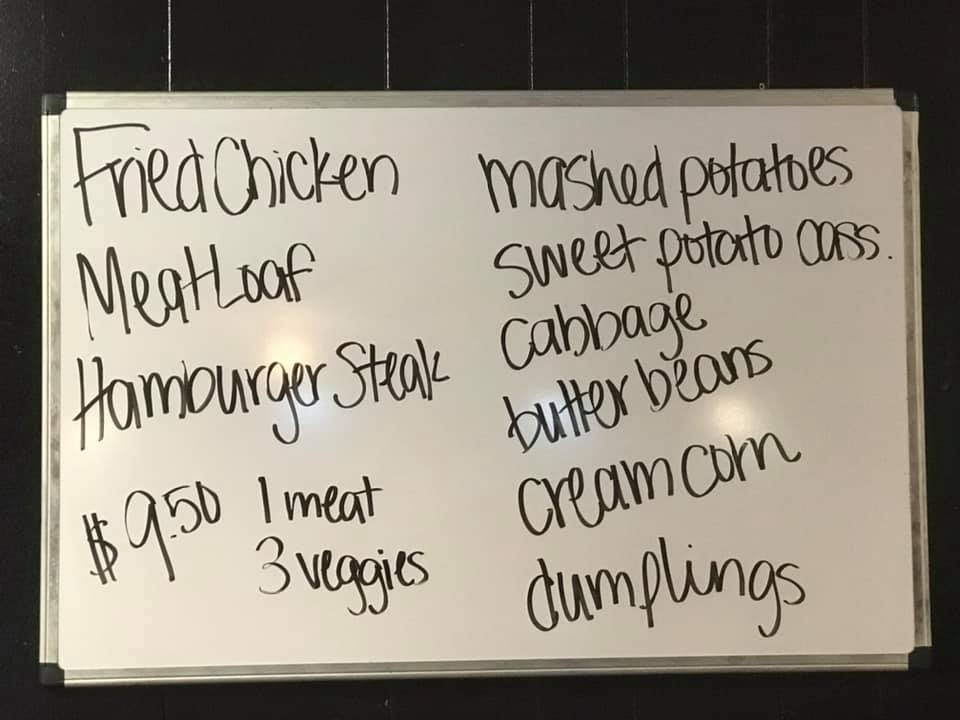 Fried Chicken
Meat Loaf
Hamburger Steak
$9.50 1 meat
3 veggies
mashed potatoes
sweet potato cass.
cabbage
butter beans
cream corn
dumplings